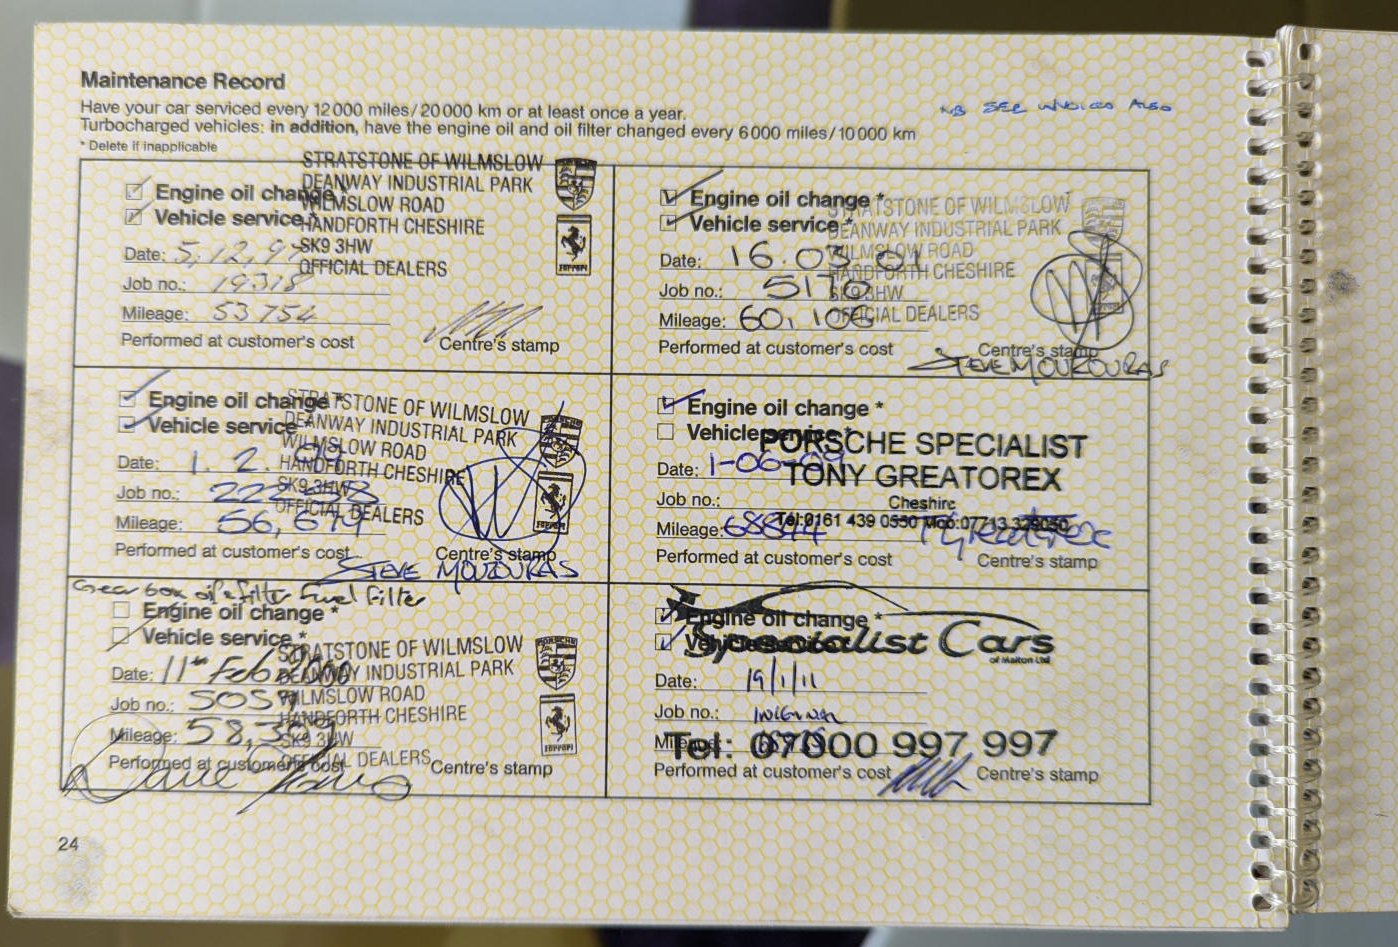 Maintenance Record
Have your car serviced every 12000 miles/20000 km or at least once a year.
Turbocharged vehicles: in addition, have the engine oil and oil filter changed every 6000 miles/10000 km
* Delete if inapplicable
NB SEE INVOICES ALSO
STRATSTONE OF WILMSLOW
DEANWAY INDUSTRIAL PARK
WILMSLOW ROAD
HANDFORTH CHESHIRE
SK9 3HW
OFFICIAL DEALERS
Engine oil change *
Vehicle service *
Date: 5.12.97
Job no.: 19318
Mileage: 53754
Performed at customer's cost
Centre's stamp
STRATSTONE OF WILMSLOW
DEANWAY INDUSTRIAL PARK
WILMSLOW ROAD
HANDFORTH CHESHIRE
SK9 3HW
OFFICIAL DEALERS
Engine oil change *
Vehicle service *
Date: 1. 2. 99
Job no.:
Mileage: 56,679
Performed at customer's cost
Centre's stamp
STEVE MOUZOURAS
Gear box oil & filter Fuel Filter
STRATSTONE OF WILMSLOW
DEANWAY INDUSTRIAL PARK
WILMSLOW ROAD
HANDFORTH CHESHIRE
SK9 3HW
OFFICIAL DEALERS
PORSCHE
Ferrari
Engine oil change *
Vehicle service *
Date: 11th Feb 2000
Job no.:
Mileage:
Performed at customer's cost
Centre's stamp
STRATSTONE OF WILMSLOW
DEANWAY INDUSTRIAL PARK
WILMSLOW ROAD
HANDFORTH CHESHIRE
SK9 3HW
OFFICIAL DEALERS
Engine oil change *
Vehicle service *
Date: 16.03.01
Job no.: 5170
Mileage: 60,106
Performed at customer's cost
Centre's stamp
STEVE MOUZOURAS
Engine oil change *
Vehicle service *
PORSCHE SPECIALIST
TONY GREATOREX
Cheshire
Tel:0161 439 0550 Mob:07713 329050
Date: 1-06-09
Job no.:
Mileage: 68844
Performed at customer's cost
Centre's stamp
Engine oil change *
Vehicle service *
Specialist Cars
of Malton Ltd
Date: 19/1/11
Job no.: INTERNAL
Mileage:
Tel: 07000 997 997
Performed at customer's cost
Centre's stamp
24